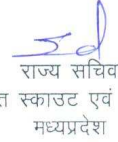 राज्य सचिव
स्काउट एवं
मध्यप्रदेश